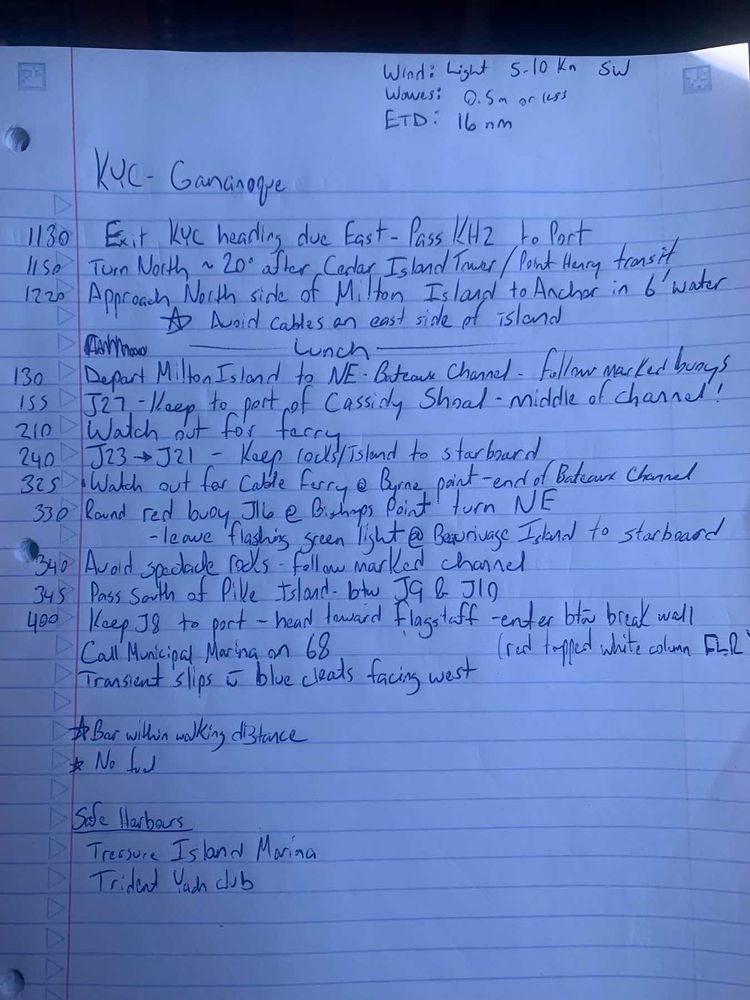 Wind: Light 5-10 Kn SW
Waves: 0.5m or less
ETD: 16 nm
KYC - Gananoque
1130 Exit KYC heading due East - Pass KH2 to Port
1150 Turn North ~ 20° after Cedar Island Tower / Point Henry transit
1220 Approach North side of Milton Island to Anchor in 6' water
☆ Avoid cables on east side of island
Lunch
130 Depart Milton Island to NE - Bateaux Channel - follow marked buoys
155 J27 - Keep to port of Cassidy Shoal - middle of channel!
210 Watch out for ferry
240 J23 → J21 - Keep rocks/Island to starboard
325 Watch out for Cable Ferry @ Byrne point - end of Bateaux Channel
330 Round red buoy J16 @ Bishops Point turn NE
- leave flashing green light @ Beaurivage Island to starboard
340 Avoid spectacle rocks - follow marked channel
345 Pass South of Pike Island - btw J9 & J10
400 Keep J8 to port - head toward flagstaff - enter btw break wall
Call Municipal Marina on 68 (red topped white column FLR
Transient slips c̄ blue cleats facing west
☆ Bar within walking distance
☆ No fuel
Safe Harbours
Treasure Island Marina
Trident Yach club